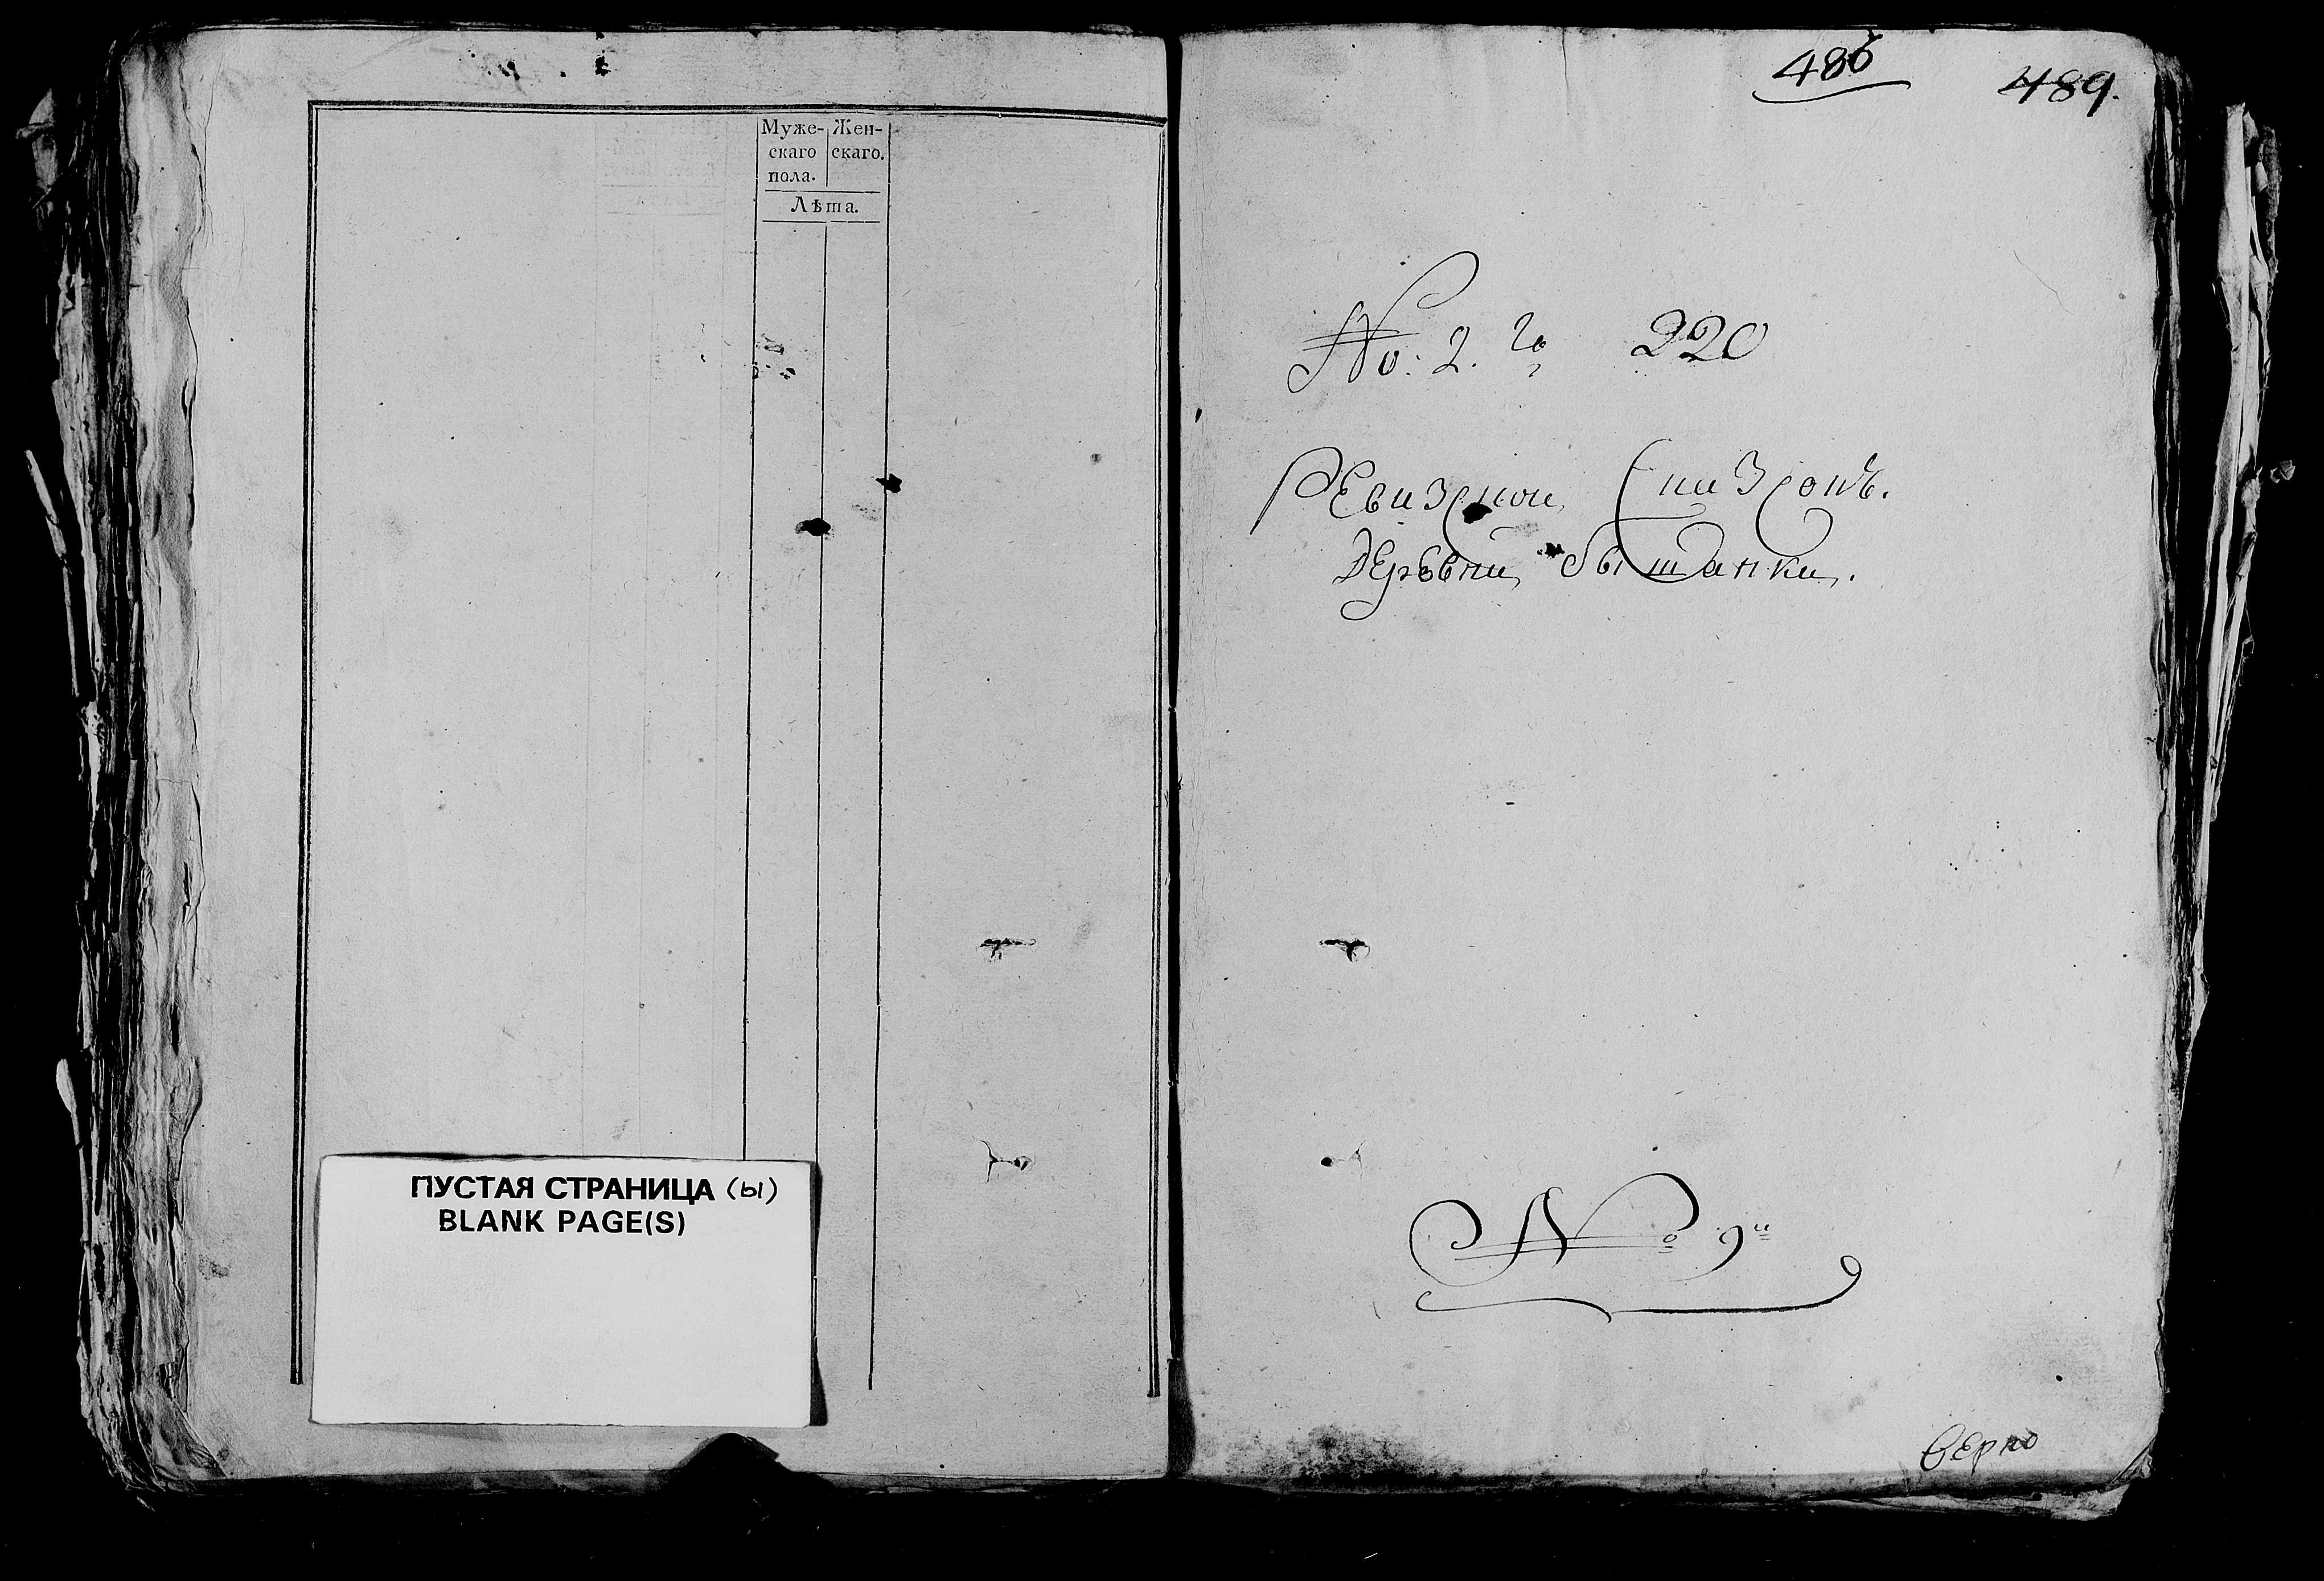 Муже- Жен-
скаго скаго.
пола.
Лѣта.
ПУСТАЯ СТРАНИЦА (ы)
BLANK PAGE(S)
486 489.
No: 2. го 220
Ревизской Списокъ.
деревни быштанки.
No 9й
верно